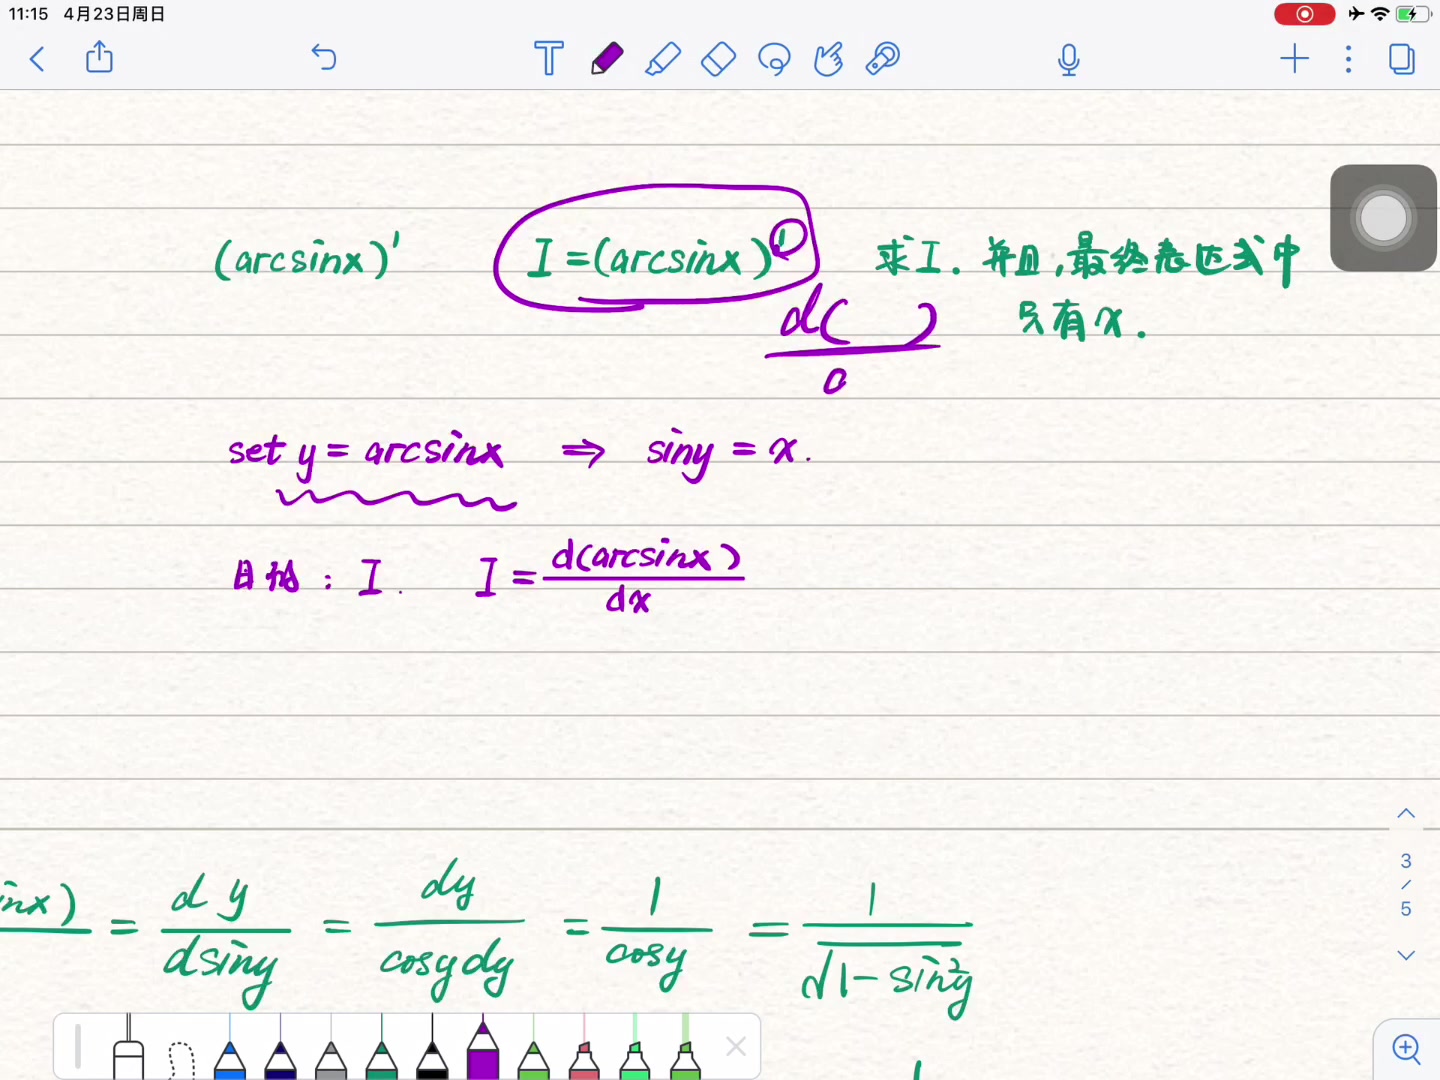 11:15 4月23日周日
(arcsinx)' I=(arcsinx)' 求I. 并且,最终表达式中
只有x.
d( )
set y = arcsinx ⇒ siny = x.
目标: I. I = d(arcsinx)/dx
inx) = dy/dsiny = dy/cosydy = 1/cosy = 1/√1-sin²y
3
/
5